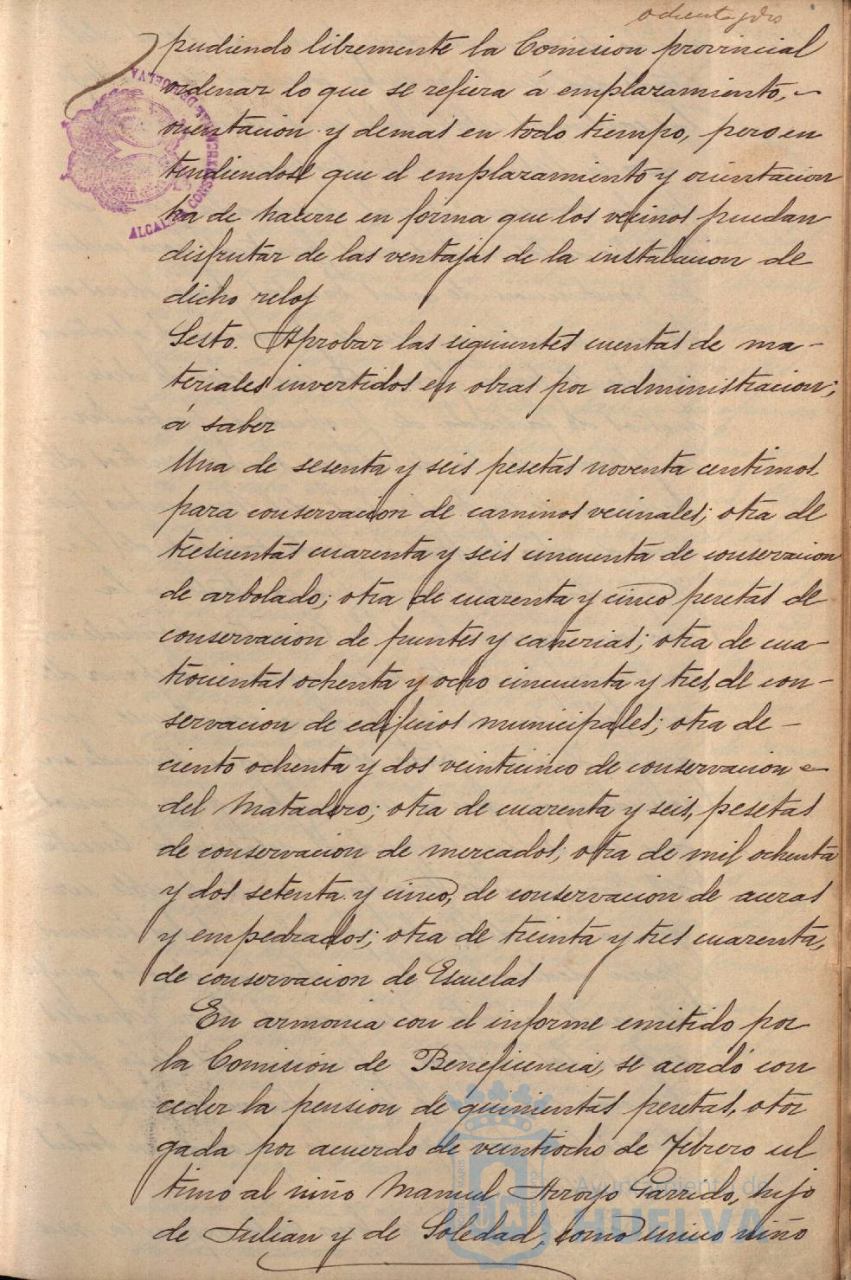 ochenta y dos
pudiendo libremente la Comision provincial
ordenar lo que se refiera á emplazamiento,
orientacion y demas en todo tiempo, pero en
tendiendose que el emplazamiento y orientacion
ha de hacerse en forma que los vecinos puedan
disfrutar de las ventajas de la instalacion de
dicho reloj
Sesto. Aprobar las siguientes cuentas de ma-
teriales invertidos en obras por administracion;
á saber
Una de sesenta y seis pesetas noventa centimos
para conservacion de caminos vecinales; otra de
trescientas cuarenta y seis cincuenta de conservacion
de arbolado; otra de cuarenta y cinco pesetas de
conservacion de fuentes y cañerias; otra de cua-
trocientas ochenta y ocho cincuenta y tres, de con-
servacion de edificios municipales; otra de-
ciento ochenta y dos veinticinco de conservacion
del Matadero; otra de cuarenta y seis, pesetas
de conservacion de mercados; otra de mil ochenta
y dos setenta y cinco, de conservacion de aceras
y empedrados; otra de treinta y tres cuarenta,
de conservacion de Escuelas
En armonia con el informe emitido por
la Comisión de Beneficencia, se acordó con
ceder la pension de quinientas pesetas, otor
gada por acuerdo de veintiocho de Febrero ul
timo al niño Manuel Arroyo Garrido, hijo
de Julian y de Soledad, como unico niño
ALCALDIA CONSTITUCIONAL DE HUELVA
Ayuntamiento de
HUELVA